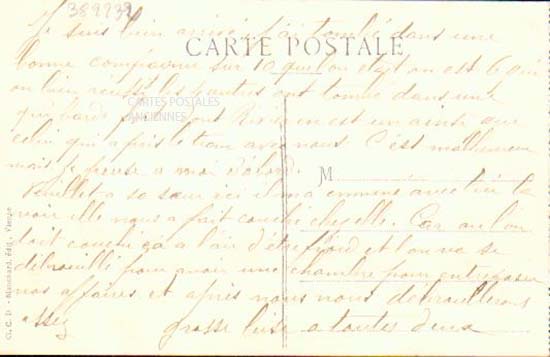 389239
Je suis bien arrivé, j'ai tombé dans une
CARTE POSTALE
bonne compagnie sur 10 que l'on était on est 6 qui
on bien réussi les 4 autres ont tombé dans une
CARTES POSTALES
ANCIENNES
qui barde
celui qui a pris le train avec nous. C'est malheureux
mais je pense a moi d'abord.
M
a sa sœur ici il m'a emmené avec lui la
voir elle nous a fait couché chez elle. Car ou l'on
doit couché ça a l'air d'être froid et l'on va se
débrouillé pour avoir une chambre pour entreposer
nos affaires et après nous nous débrouillerons
assez grosse bise a toutes deux
G. C. D. - Blanchard, édit., Vienne